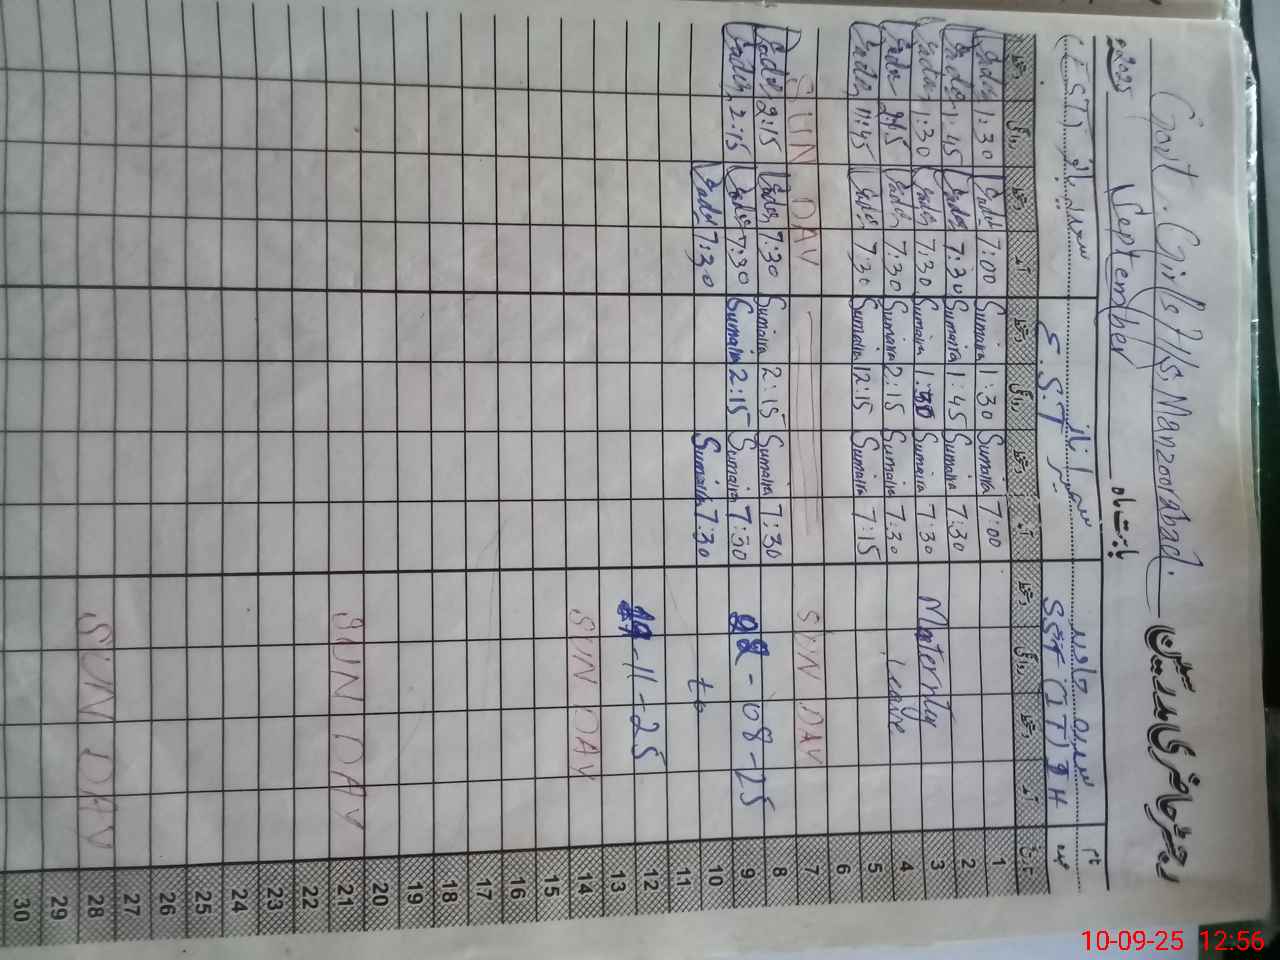 Govt. Girls H/S Manzoorabad. رجسٹر حاضری مدرسین
2025 September بابت ماہ
نام
(EST) سعدیہ بانو سمیرا ناز سدرہ جاوید
S.S.T SST (IT) IH عہدہ
دستخط روانگی دستخط آمد دستخط روانگی دستخط آمد دستخط روانگی دستخط آمد تاریخ
1:30 7:00 Sumaira 1:30 Sumaira 7:00 1
1:45 7:30 Sumaira 1:45 Sumaira 7:30 2
1:30 7:30 Sumaira 1:30 Sumaira 7:30 Maternity 3
2:15 7:30 Sumaira 2:15 Sumaira 7:30 Leave 4
11:45 7:30 Sumaira 12:15 Sumaira 7:15 5
6
SUN DAY SUN DAY 7
2:15 7:30 Sumaira 2:15 Sumaira 7:30 8
2:15 7:30 Sumaira 2:15 Sumaira 7:30 22-08-25 9
7:30 Sumaira 7:30 to 10
11
19-11-25 12
13
SUN DAY 14
15
16
17
18
19
20
SUN DAY 21
22
23
24
25
26
27
SUN DAY 28
29
30
10-09-25 12:56